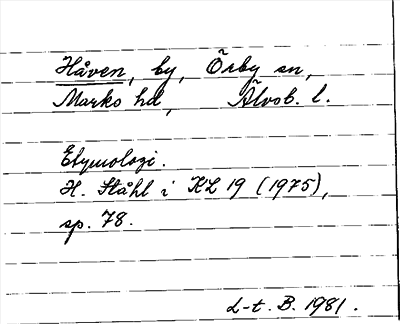 Håven, by, Örby sn,
Marks hd, Älvsb. l.
Etymologi.
H. Ståhl i KL 19 (1975),
sp. 78.
L-t. B. 1981.